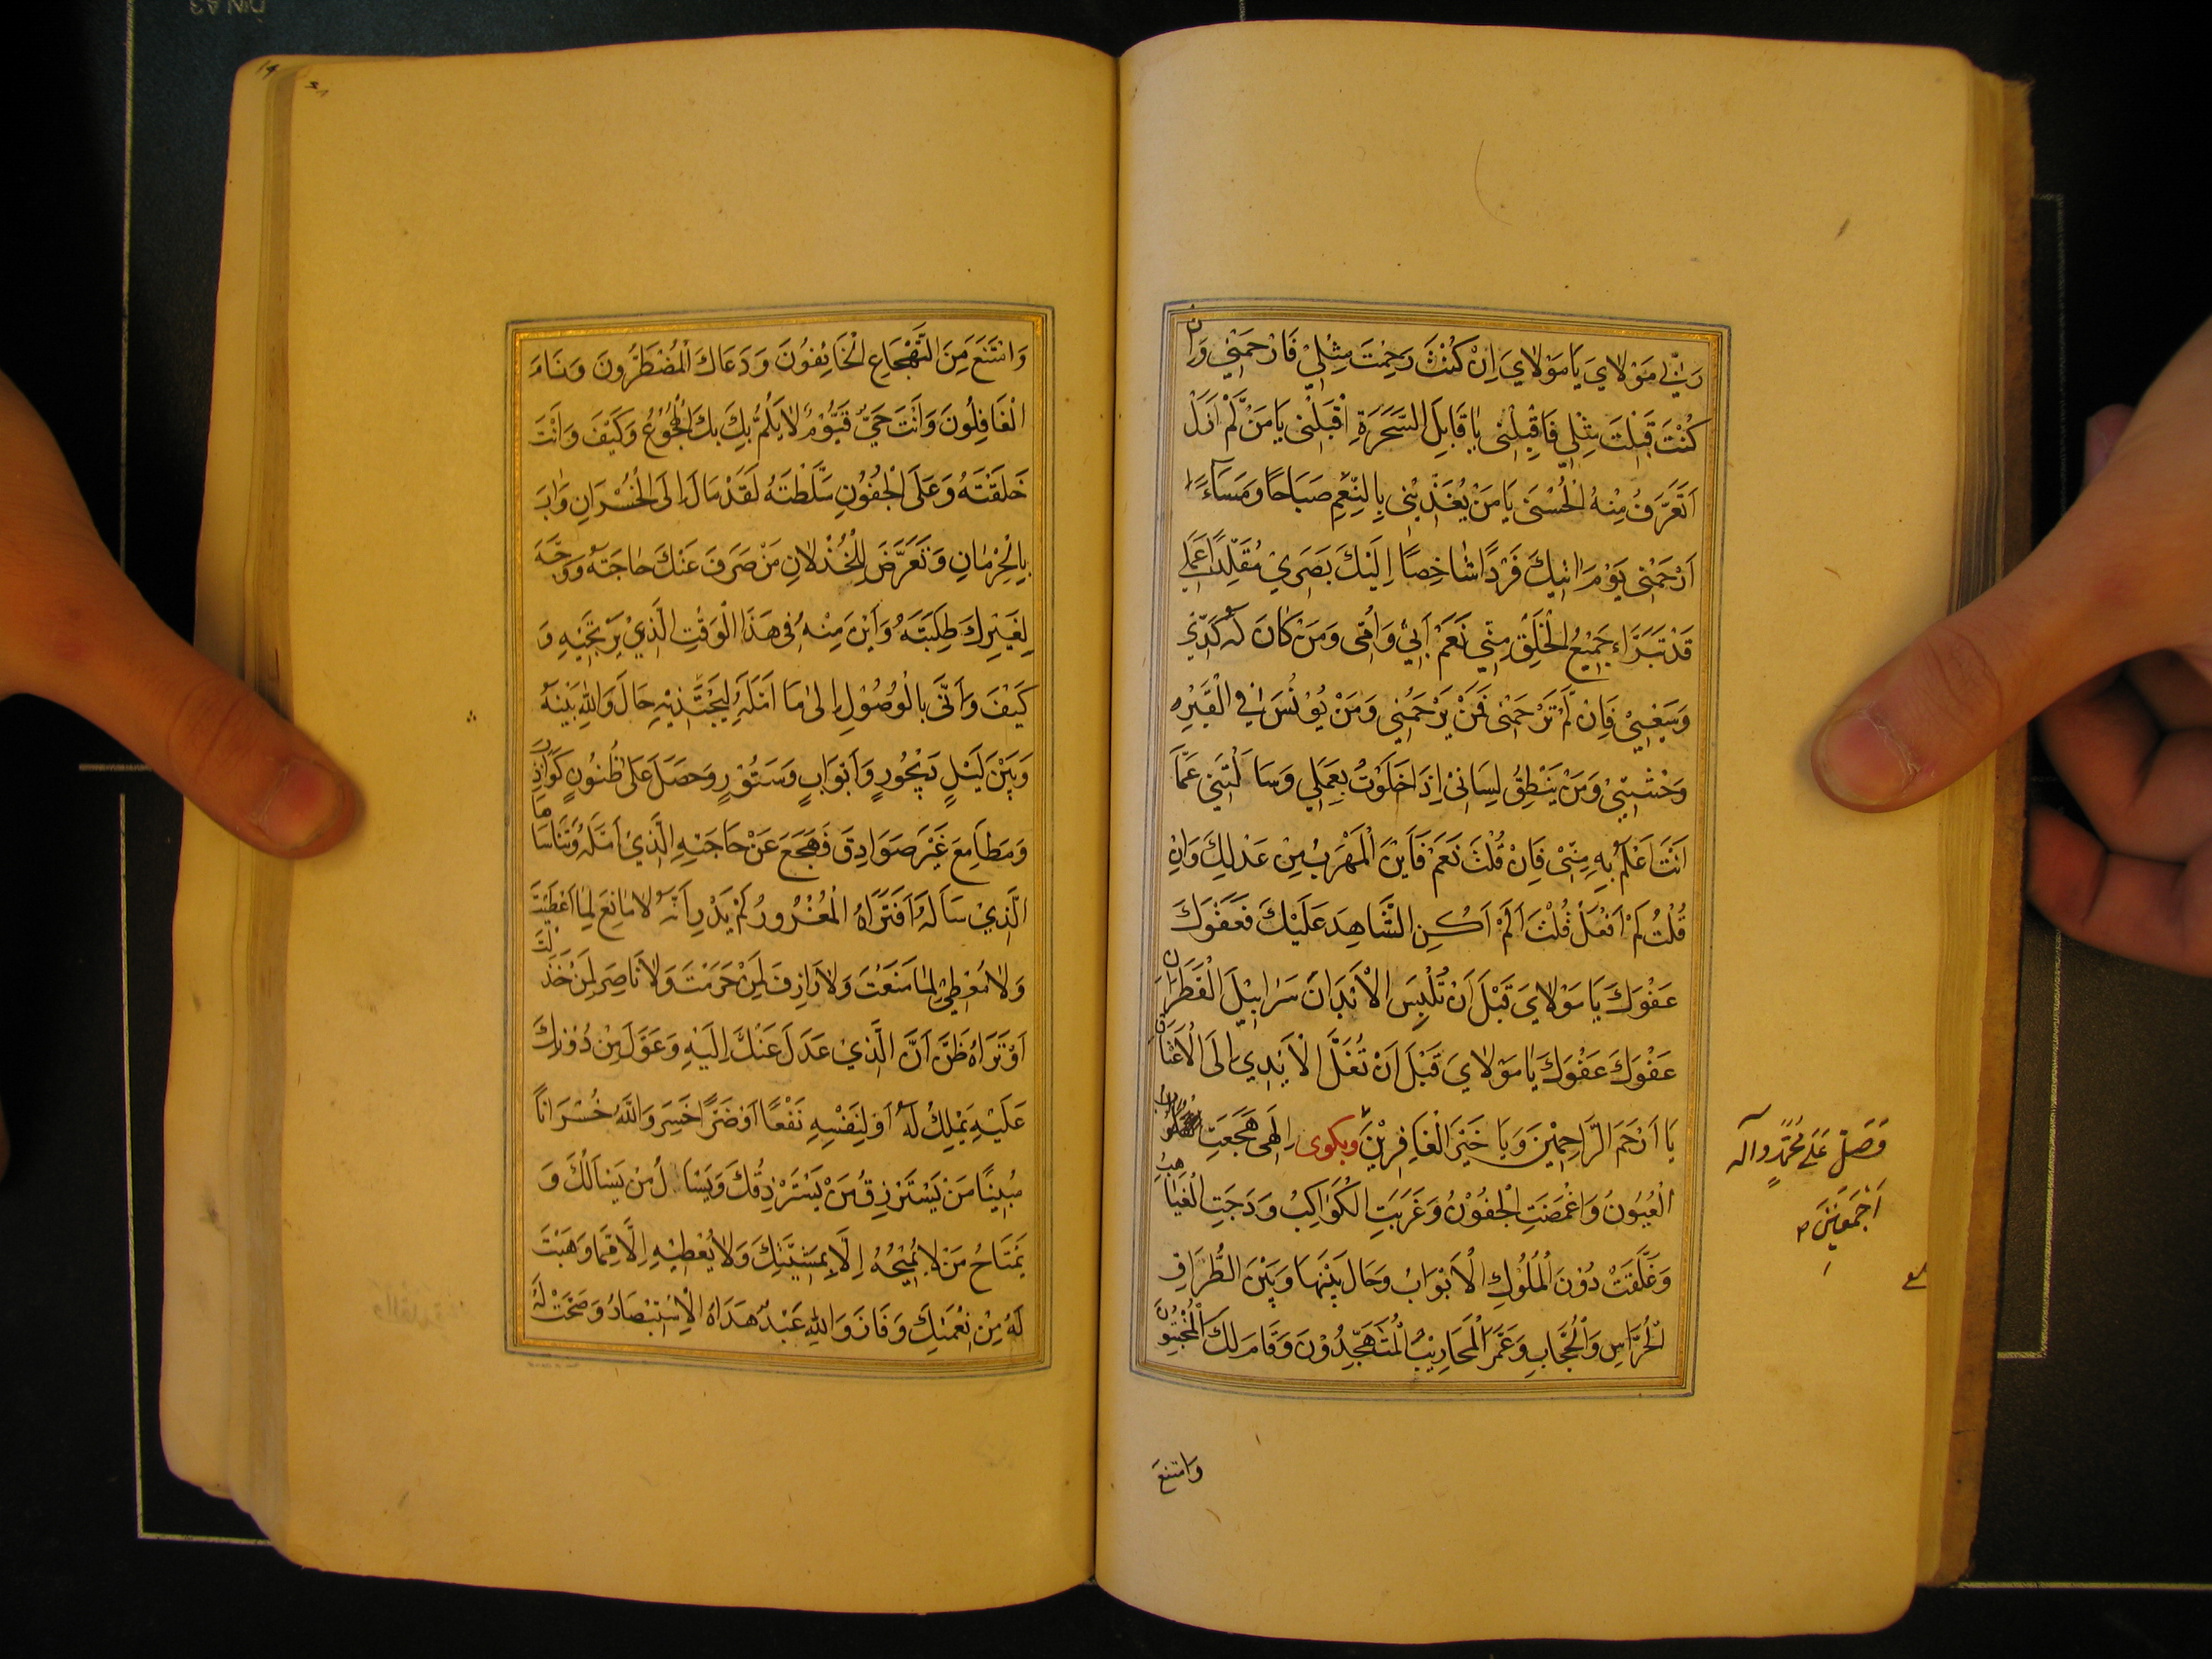 رَبِّي مَوْلَايَ يَا مَوْلَايَ اِنْ كُنْتَ رَحِمْتَ مِثْلِيْ فَارْحَمْنِيْ وَاِنْ
كُنْتَ قَبِلْتَ مِثْلِي فَاقْبِلْنِى يَا قَابِلَ السَّحَرَةِ اقْبَلْنِى يَا مَنْ لَمْ اَزَلْ
اَتَعَرَّفُ مِنْهُ الْحُسْنَى يَا مَنْ يُغَذِّيْنِى بِالنِّعَمِ صَبَاحًا وَمَسَاءً
اَرْحَمْنِى يَوْمَ اٰتِيكَ فَرْدًا شَاخِصًا اِلَيْكَ بَصَرِيْ مُقَلِّدًا عَمَلِي
قَدْ تَبَرَّاءَ جَمِيْعُ الْخَلْقِ مِنِّي نَعَمْ اَبِيْ وَاُمِّى وَمَنْ كَانَ لَهُ كَدِّيْ
وَسَعْيِيْ فَاِنْ لَمْ تَرْحَمْنِى فَمَنْ يَرْحَمُنِي وَمَنْ يُوْنِسُ فِي الْقَبْرِ
وَحْشَتِيْ وَمَنْ يَنْطِقُ لِسَانِىْ اِذَا خَلَوْتُ بِعَمَلِي وَسَاَلْتَنِي عَمَّا
اَنْتَ اَعْلَمُ بِهِ مِنِّىْ فَاِنْ قُلْتُ نَعَمْ فَاَيْنَ الْمَهْرَبُ مِنْ عَدْلِكَ وَاِنْ
قُلْتُ لَمْ اَفْعَلْ قُلْتَ اَلَمْ اَكُنِ الشَّاهِدَ عَلَيْكَ فَعَفْوَكَ
عَفْوَكَ يَا مَوْلَايَ قَبْلَ اَنْ تُلْبِسَ الْاَبْدَانَ سَرَابِيْلَ الْقَطِرَانِ
عَفْوَكَ عَفْوَكَ يَا مَوْلَايَ قَبْلَ اَنْ تُغَلَّ الْاَيْدِي اِلَى الْاَعْنَاقِ
يَا اَرْحَمَ الرَّاحِمِيْنَ وَيَا خَيْرَ الْغَافِرِيْنَ وبكوى اِلٰهِى هَجَعَتِ
الْعُيُونُ وَاغْمَضَتِ الْجُفُوْنُ وَغَرَبَتِ الْكَوَاكِبُ وَدَجَتِ الْغَيَاهِبُ
وَغَلَّقَتْ دُوْنَ الْمُلُوكِ الْاَبْوَابُ وَحَالَ بَيْنَهَا وَبَيْنَ الطُّرَّاقِ
الْحُرَّاسِ وَالْحُجَّابِ وَعَمَّرَ الْمَحَارِيْبَ الْمُتَهَجِّدُوْنَ وَقَامَ لَكَ الْمُخْبِتُونَ
وامتنع
وَصَلِّ عَلٰى مُحَمَّدٍ وَآلِهِ
اَجْمَعِينَ
وَامْتَنَعَ مِنَ التَّهْجَاعِ الْخَائِفُونَ وَدَعَاكَ الْمُضْطَرُّونَ وَنَامَ
الْغَافِلُونَ وَاَنْتَ حَيٌّ قَيُّوْمٌ لَا يَلُمُّ بِكَ الْهُجُوْعُ وَكَيْفَ وَاَنْتَ
خَلَقْتَهُ وَعَلَى الْجُفُوْنِ سَلَّطْتَهُ لَقَدْ مَالَ اِلَى الْخُسْرَانِ وَابَ
بِالْحِرْمَانِ وَتَعَرَّضَ لِلْخُذْلَانِ مَنْ صَرَفَ عَنْكَ حَاجَتَهُ وَوَجَّهَ
لِغَيْرِكَ طِلِبَتَهُ وَاَيْنَ مِنْهُ فِى هَذَا الْوَقْتِ الَّذِيْ يَرْتَجِيْهِ وَ
كَيْفَ وَاَنّٰى بِالْوُصُوْلِ اِلٰى مَا اَمَّلَهُ لِيَجْتَدِيْهِ حَالَ وَاللهِ بَيْنَهُ
وَبَيْنَ لَيْلٍ دَيْجُوْرٍ وَاَبْوَابٍ وَسُتُوْرٍ وَحَصَلَ عَلَى ظُنُوْنٍ كَوَاذِبَ
وَمَطَامِعَ غَيْرَ صَوَادِقَ فَهَجَعَ عَنْ حَاجَتِهِ الَّذِيْ اَمَّلَهُ وَتَنَاسَاهَا
الَّذِيْ سَاَلَهُ اَفَتَرَاهُ الْمَغْرُورُ لَمْ يَدْرِ اَنَّهُ لَا مَانِعَ لِمَا اَعْطَيْتَ
وَلَا مُعْطِيَ لِمَا مَنَعْتَ وَلَا رَازِقَ لِمَنْ حَرَمْتَ وَلَا نَاصِرَ لِمَنْ خَذَلْتَ
اَوْتَرَاهُ ظَنَّ اَنَّ الَّذِيْ عَدَلَ عَنْكَ اِلَيْهِ وَعَوَّلَ مِنْ دُوْنِكَ
عَلَيْهِ يَمْلِكُ لَهُ اَوْ لِنَفْسِهِ نَفْعًا اَوْ ضَرًّا خَسِرَ وَاللهِ خُسْرَانًا
مُبِيْنًا مَنْ يَسْتَرْزِقُ مَنْ يَسْتَرْزِقُكَ وَيَسْاَلُ مَنْ يَسْاَلُكَ وَ
يَمْتَاحُ مَنْ لَا يُمِيْحُهُ اِلَّا بِمَشِيَّتِكَ وَلَا يُعْطِيْهِ اِلَّا مِمَّا وَهَبْتَ
لَهُ مِنْ نِعْمَتِكَ وَفَازَ وَاللهِ عَبْدٌ هَدَاهُ الْاِسْتِبْصَارُ وَصَحَّتْ لَهُ